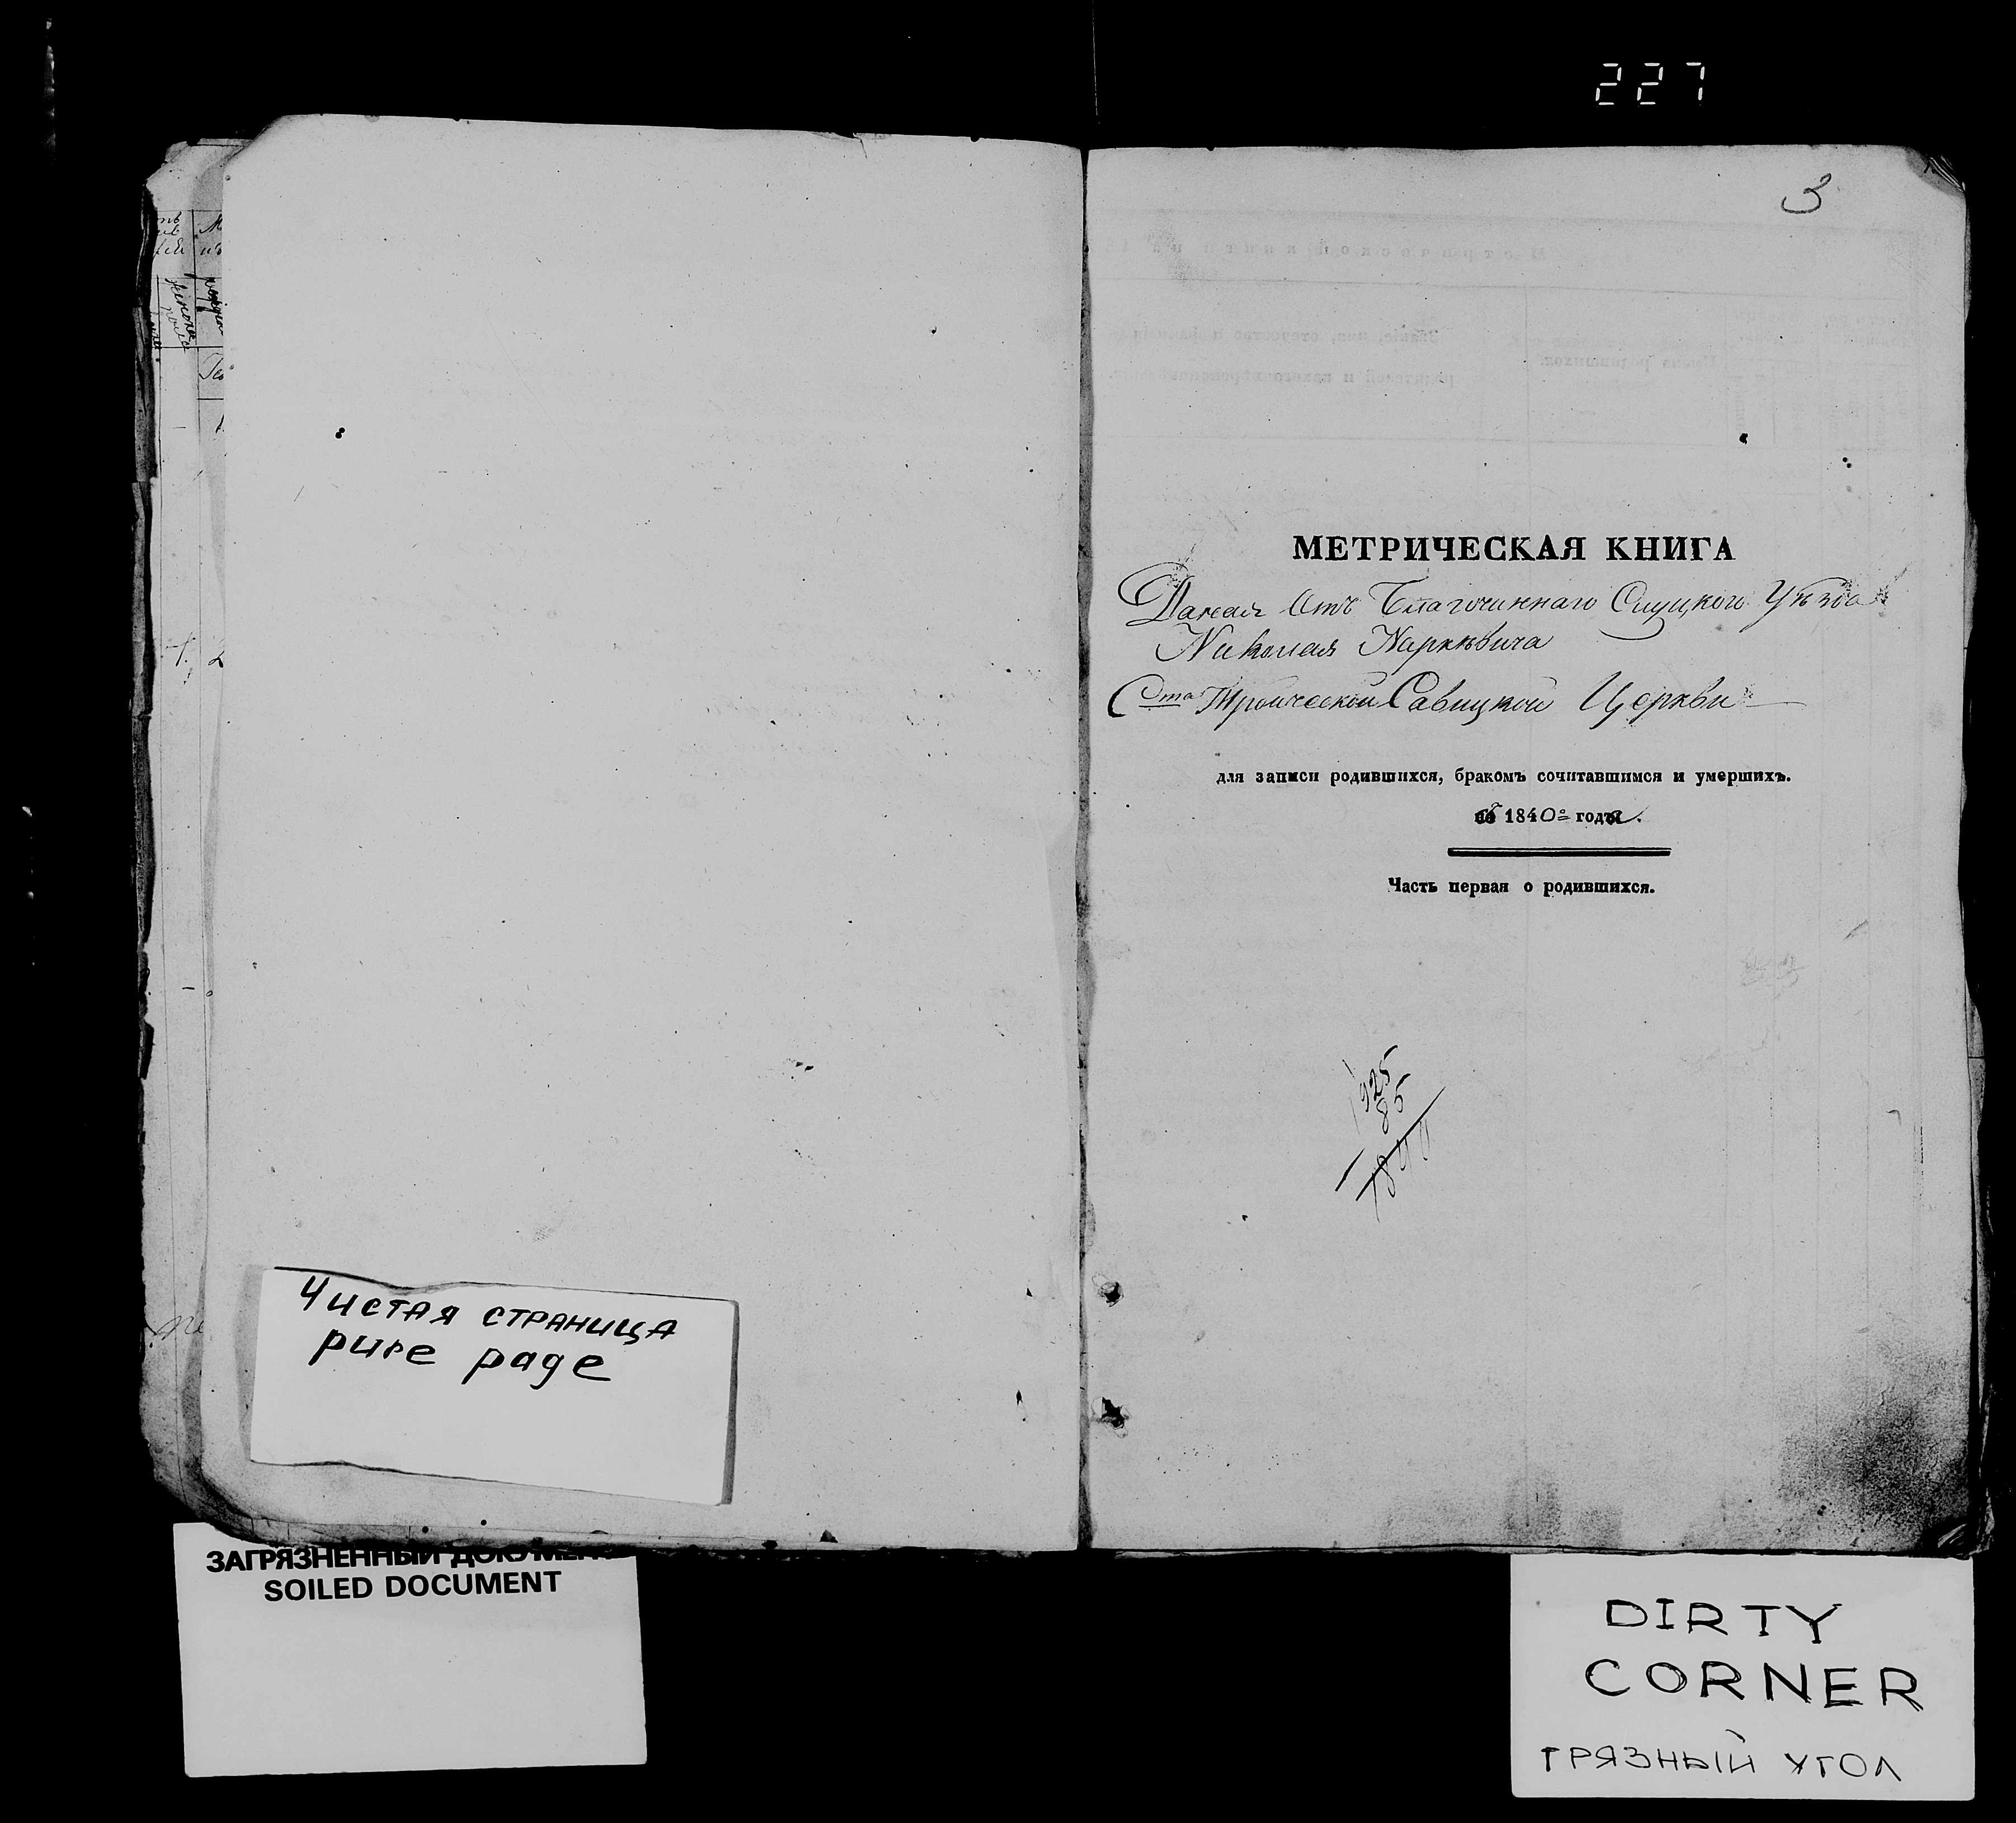 227
3
МЕТРИЧЕСКАЯ КНИГА
Даная Отъ Благочиннаго Слуцкого Уѣзда
Николая Наркѣвича
Сто Троической Савицкой Церкви
для записи родившихся, бракомъ сочитавшимся и умершихъ.
1840º года.
Часть первая о родившихся.
1925
85
1840
Чистая страница
pure page
ЗАГРЯЗНЕННЫЙ ДОКУМЕНТ
SOILED DOCUMENT
DIRTY
CORNER
ГРЯЗНЫЙ УГОЛ